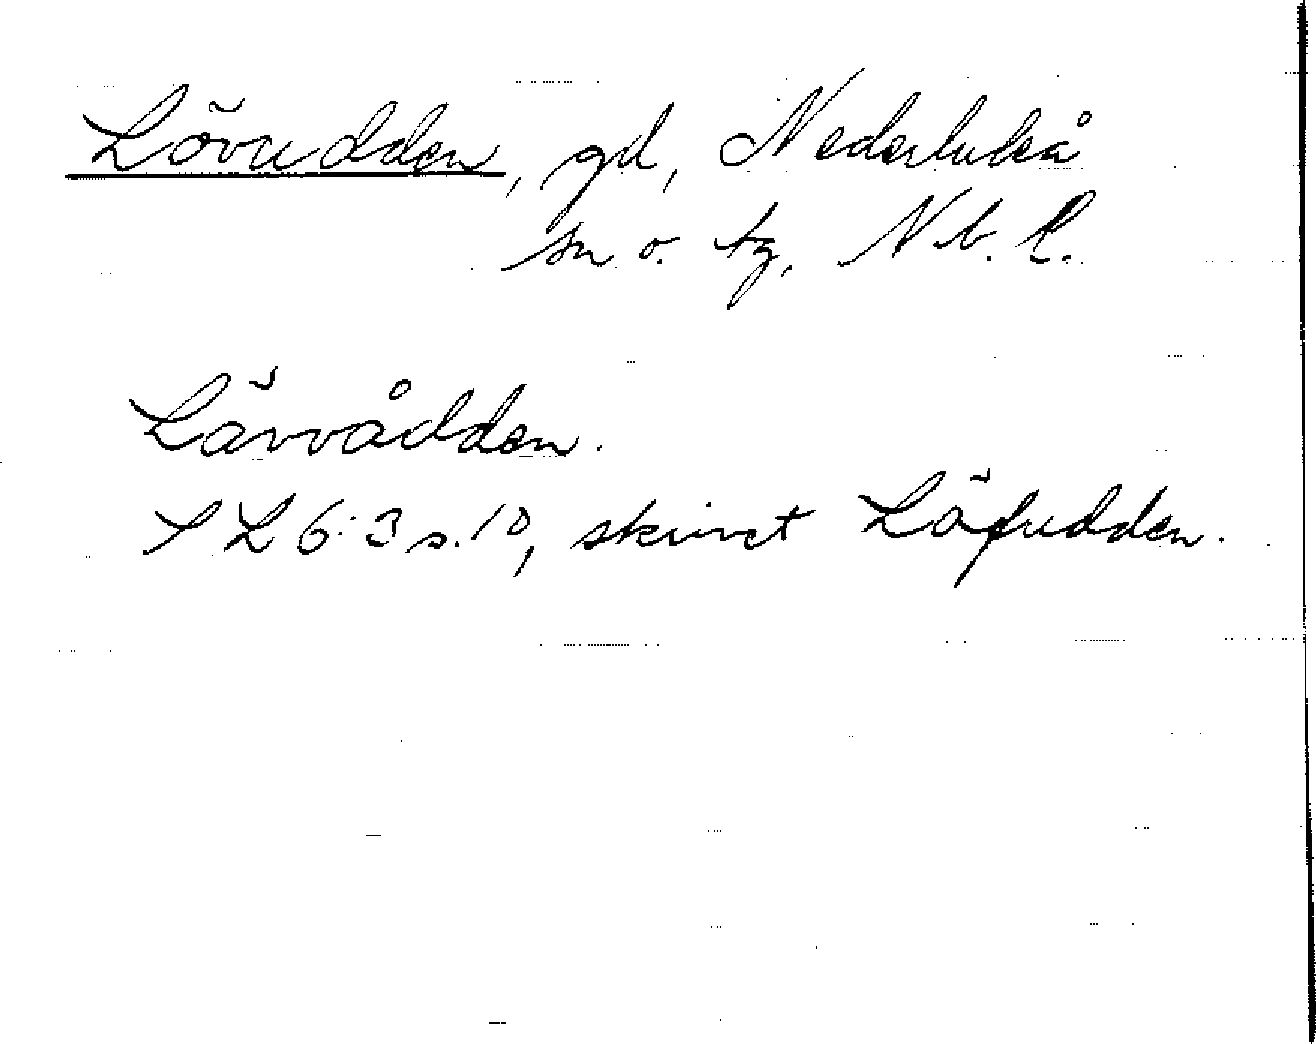 Lövudden, gd, Nederluleå
sn o. tg, Nb. l.
Lävvådden.
SL 6:3 s. 10, skrivet Löfudden.